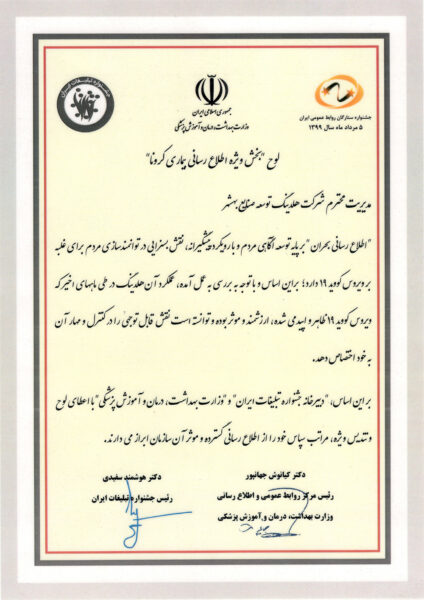 جشنواره تبلیغات ایران
جمهوری اسلامی ایران
وزارت بهداشت، درمان و آموزش پزشکی
جشنواره ستارگان روابط عمومی ایران
۵ مرداد ماه سال ۱۳۹۹
لوح "بخش ویژه اطلاع رسانی بیماری کرونا"
مدیریت محترم شرکت هلدینگ توسعه صنایع بهشهر
"اطلاع رسانی بحران" بر پایه توسعه آگاهی مردم و با رویکرد پیشگیرانه، نقش بسزایی در توانمندسازی مردم برای غلبه
بر ویروس کووید ۱۹ دارد؛ بر این اساس و با توجه به بررسی به عمل آمده، عملکرد آن هلدینگ در طی ماههای اخیر که
ویروس کووید ۱۹ ظاهر و اپیدمی شده، ارزشمند و موثر بوده و توانسته است نقش قابل توجهی را در کنترل و مهار آن
به خود اختصاص دهد.
بر این اساس، "دبیرخانه جشنواره تبلیغات ایران" و "وزارت بهداشت، درمان و آموزش پزشکی" با اعطای لوح
و تندیس ویژه، مراتب سپاس خود را از اطلاع رسانی گسترده و موثر آن سازمان ابراز می دارند.
دکتر کیانوش جهانپور
رئیس مرکز روابط عمومی و اطلاع رسانی
وزارت بهداشت، درمان و آموزش پزشکی
دکتر هوشمند سفیدی
رئیس جشنواره تبلیغات ایران